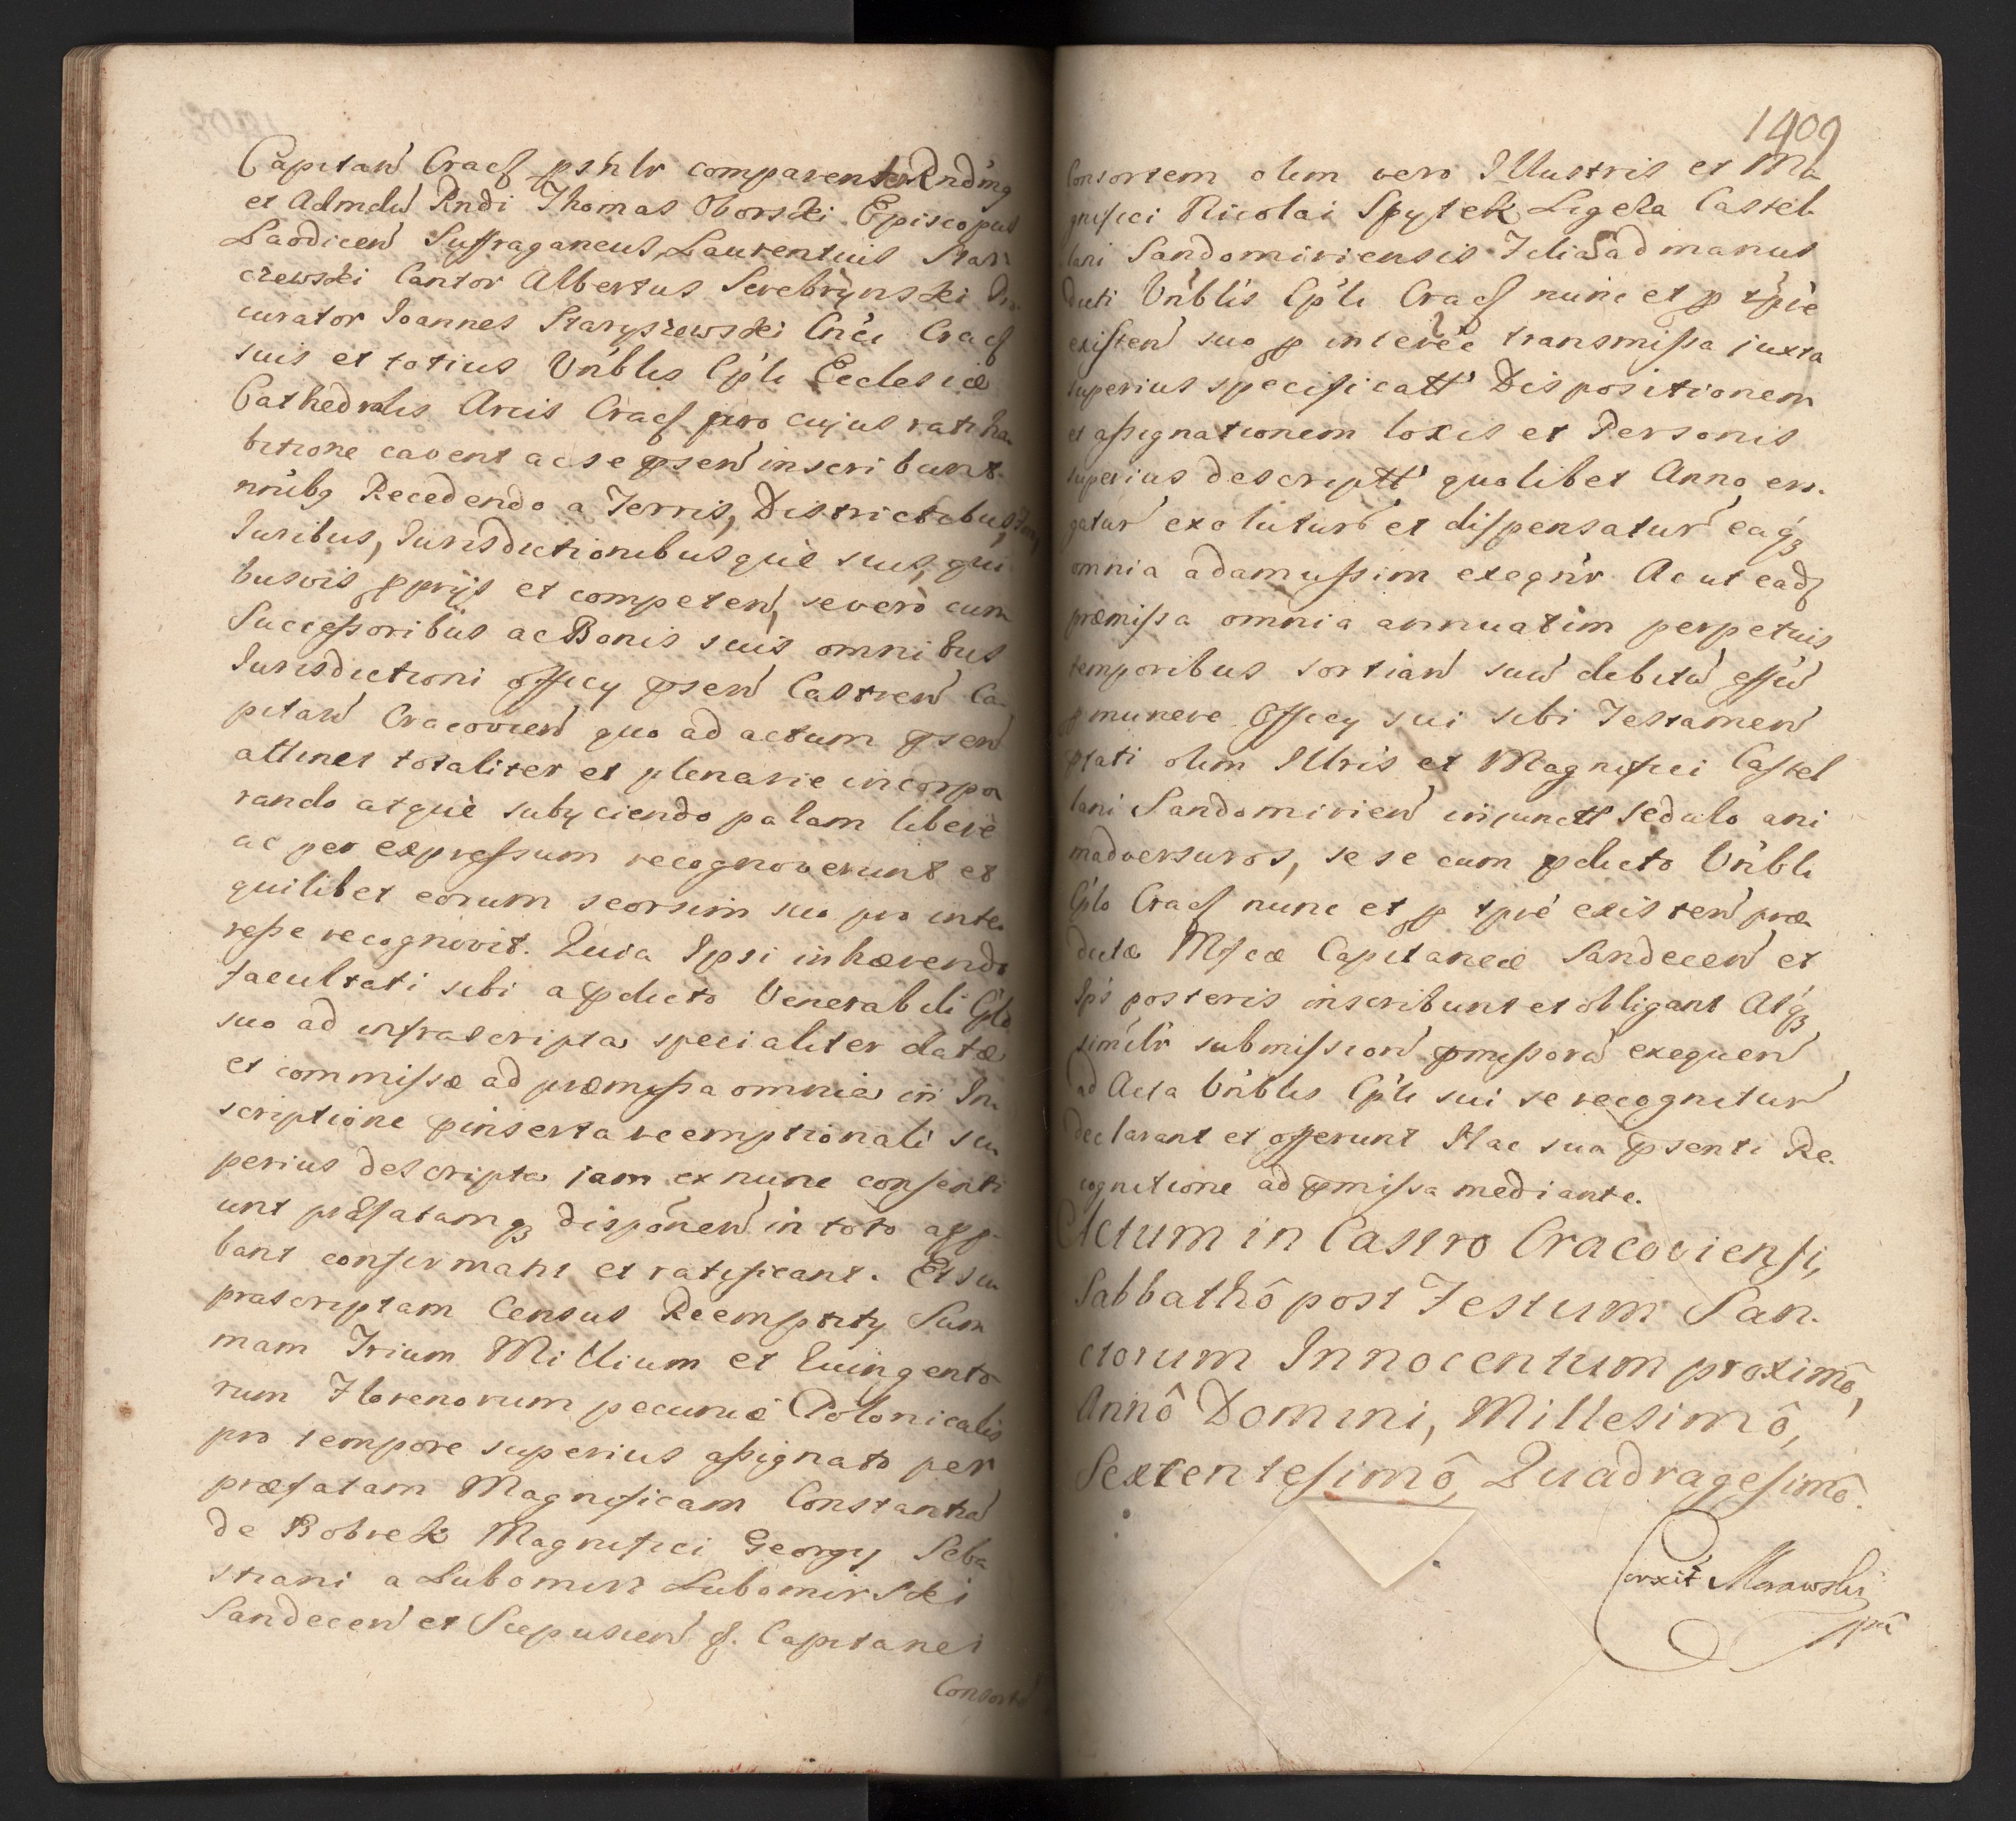 Capitan Cracẽ pshlr comparentes Rnding
et Admdũ Rndi Thomas Oborski Episcopus
Laodicen Suffraganeus, Laurentius Star
czewski Cantor Albertus Serebrÿnski Pro
curator Joannes Staryszewski Cnci Crac
suis et totius Vnblis Cpli Ecclesiæ
Cathedralis Arcis Crac pro cujus ratiha
bitione cavent ac se psen inscribunt
nnibq Recedendo a Terris, Districtibus,
Juribus, Jurisdictionibusque suis, qui
busvis pprijs et competen, se vero cum
Successoribus ac Bonis suis omnibus
Jurisdictioni officy psen Castren Ca-
pitan Cracovien quo ad actum psen
attinet totaliter et plenarie incorpo
rando atque subyciendo palam libere
ac per expressum recognoverunt et
quilibet eorum seorsim suo pro inte
resse recognovit. Quia Ipsi inhærendo
facultati sibi a pdicto Venerabili Cplo
suo ad infrascripta specialiter datæ
et commissæ ad præmissa omnia in In
scriptione pinserta reemptionali su
perius descripta iam ex nunc consenti
unt præfatamq dispònen in toto app
bant confirmant et ratificant. Et su
prascriptam Census Reemptity Sum
mam Trium Millium et Quingento
rum Florenorum pecuniæ Polonicalis
pro tempore superius assignato per
præfatam Magnificam Constantiã
de Bobrek Magnifici Georgy Seba
stiani a Lubomirz Lubomirski
Sandecen et Scepusien &. Capitanei
Consorte
1409
Consortem olim vero Illustris et Ma
gnifici Nicolai Spytek Ligeza Castel
lani Sandomiriensis Filia ad manus
dicti Vnblis Cpli Crac nunc et p tpre
existen suo p interee transmissa juxta
superius specificatt Dispositionem
et assignationem locis et Personis
superius descriptt quolibet Anno ero
gatur exolutur et dispensatur eaq
omnia adamussim exeqnr. Ac ut ead
præmissa omnia annuatim perpetuis
temporibus sortian suũ debitũ effũ
p munere Officy sui sibi Testamen
ptati olim Illris et Magnifici Castel
lani Sandomirien iniunctt sedulo ani
madversuros, se se cum pdicto Vnbli
Cplo Crac nunc et p tpre existen præ
dictæ Mfcæ Capitaneæ Sandecen et
Ips posteris inscribunt et obligant Atq
similr submission pmissorũ exequen
ad Acta Vnblis Cpli sui se recognitur
declarant et offerunt Hac sua psenti Re-
cognitione ad pmissa mediante.
Actum in Castro Cracoviensi,
Sabbathô post Festum San-
ctorum Innocentum proximô,
Annô Domini, Millesimô,
Sexcentesimô, Quadragesimô.
Corxit Morawski
mpa